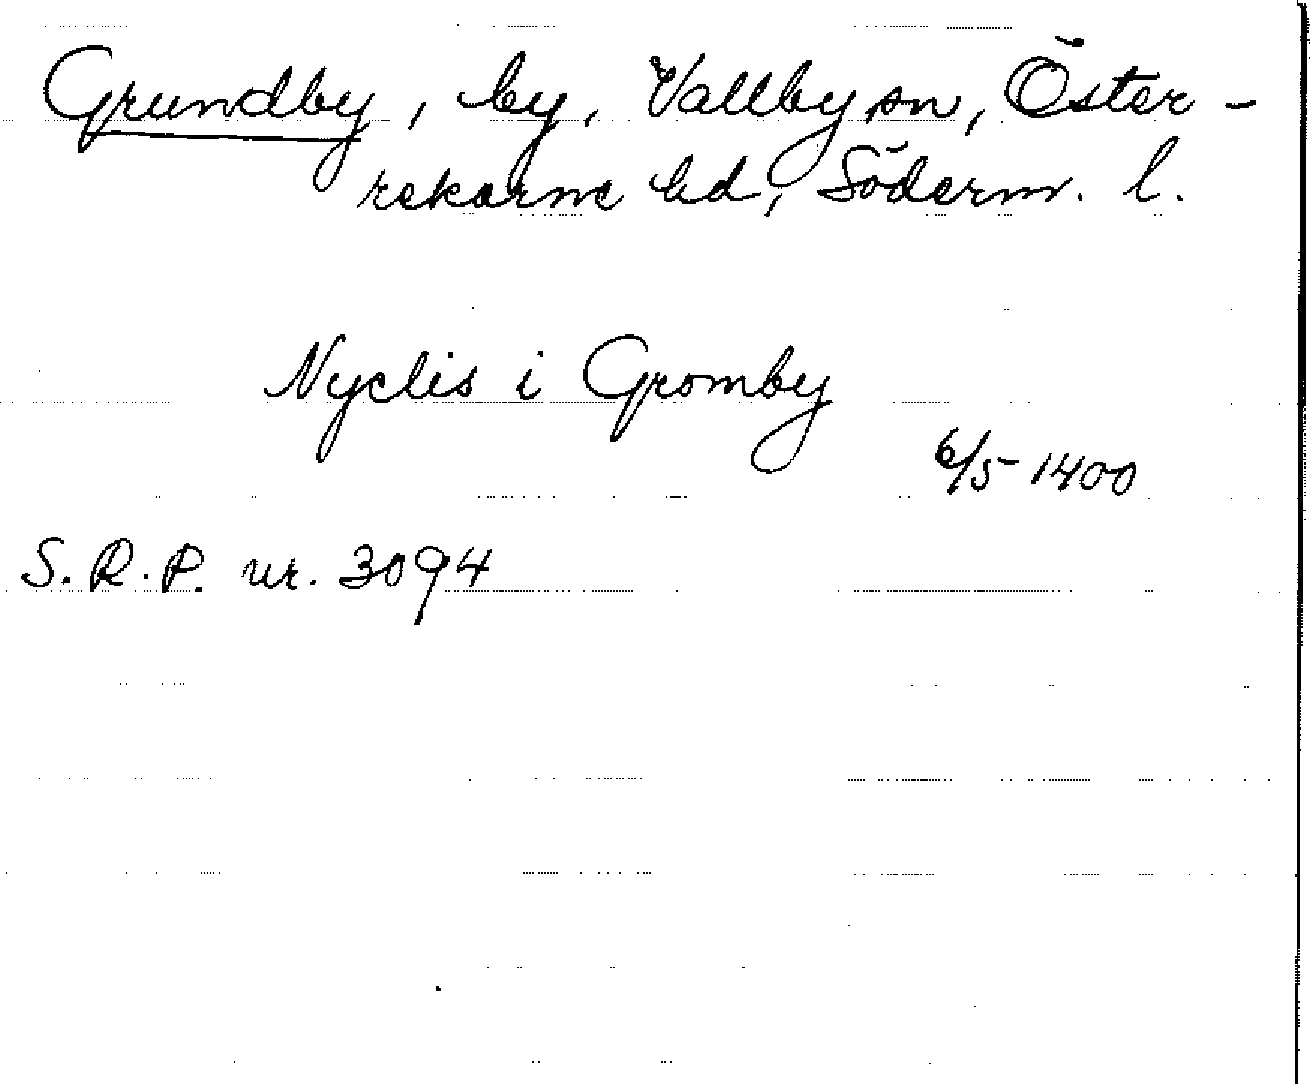 Grundby, by, Vallby sn, Öster-
rekarne hd, Söderm. l.
Nyclis i Gromby
6/5 1400
S.R.P. nr. 3094